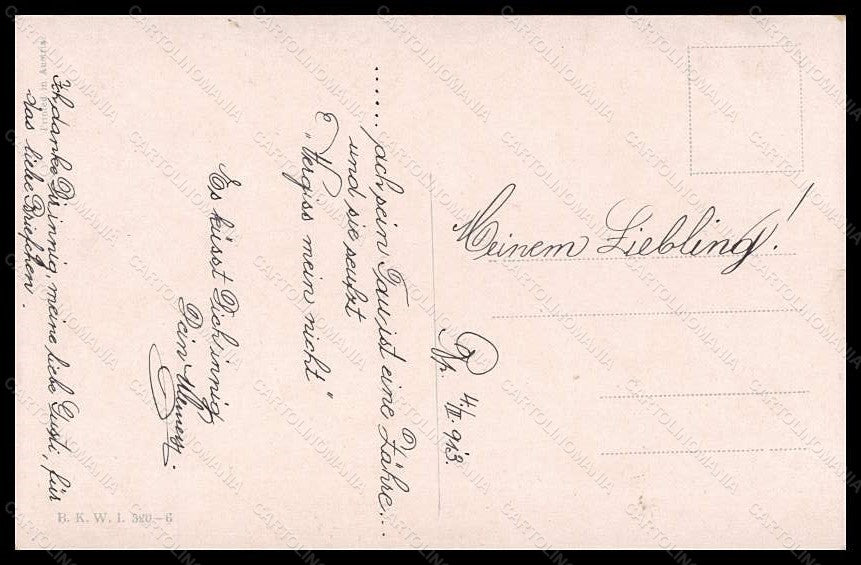 Meinem Liebling!
4/II. 913.
...... ach sein Tau ist eine Zähre...
und sie seufzt
"Vergiss mein nicht"
Es küsst Dich innig
Dein
Ich danke Dir innig meine liebe Gusti, für
das liebe Briefchen.
B. K. W. I. 320-6
CARTOLINOMANIA